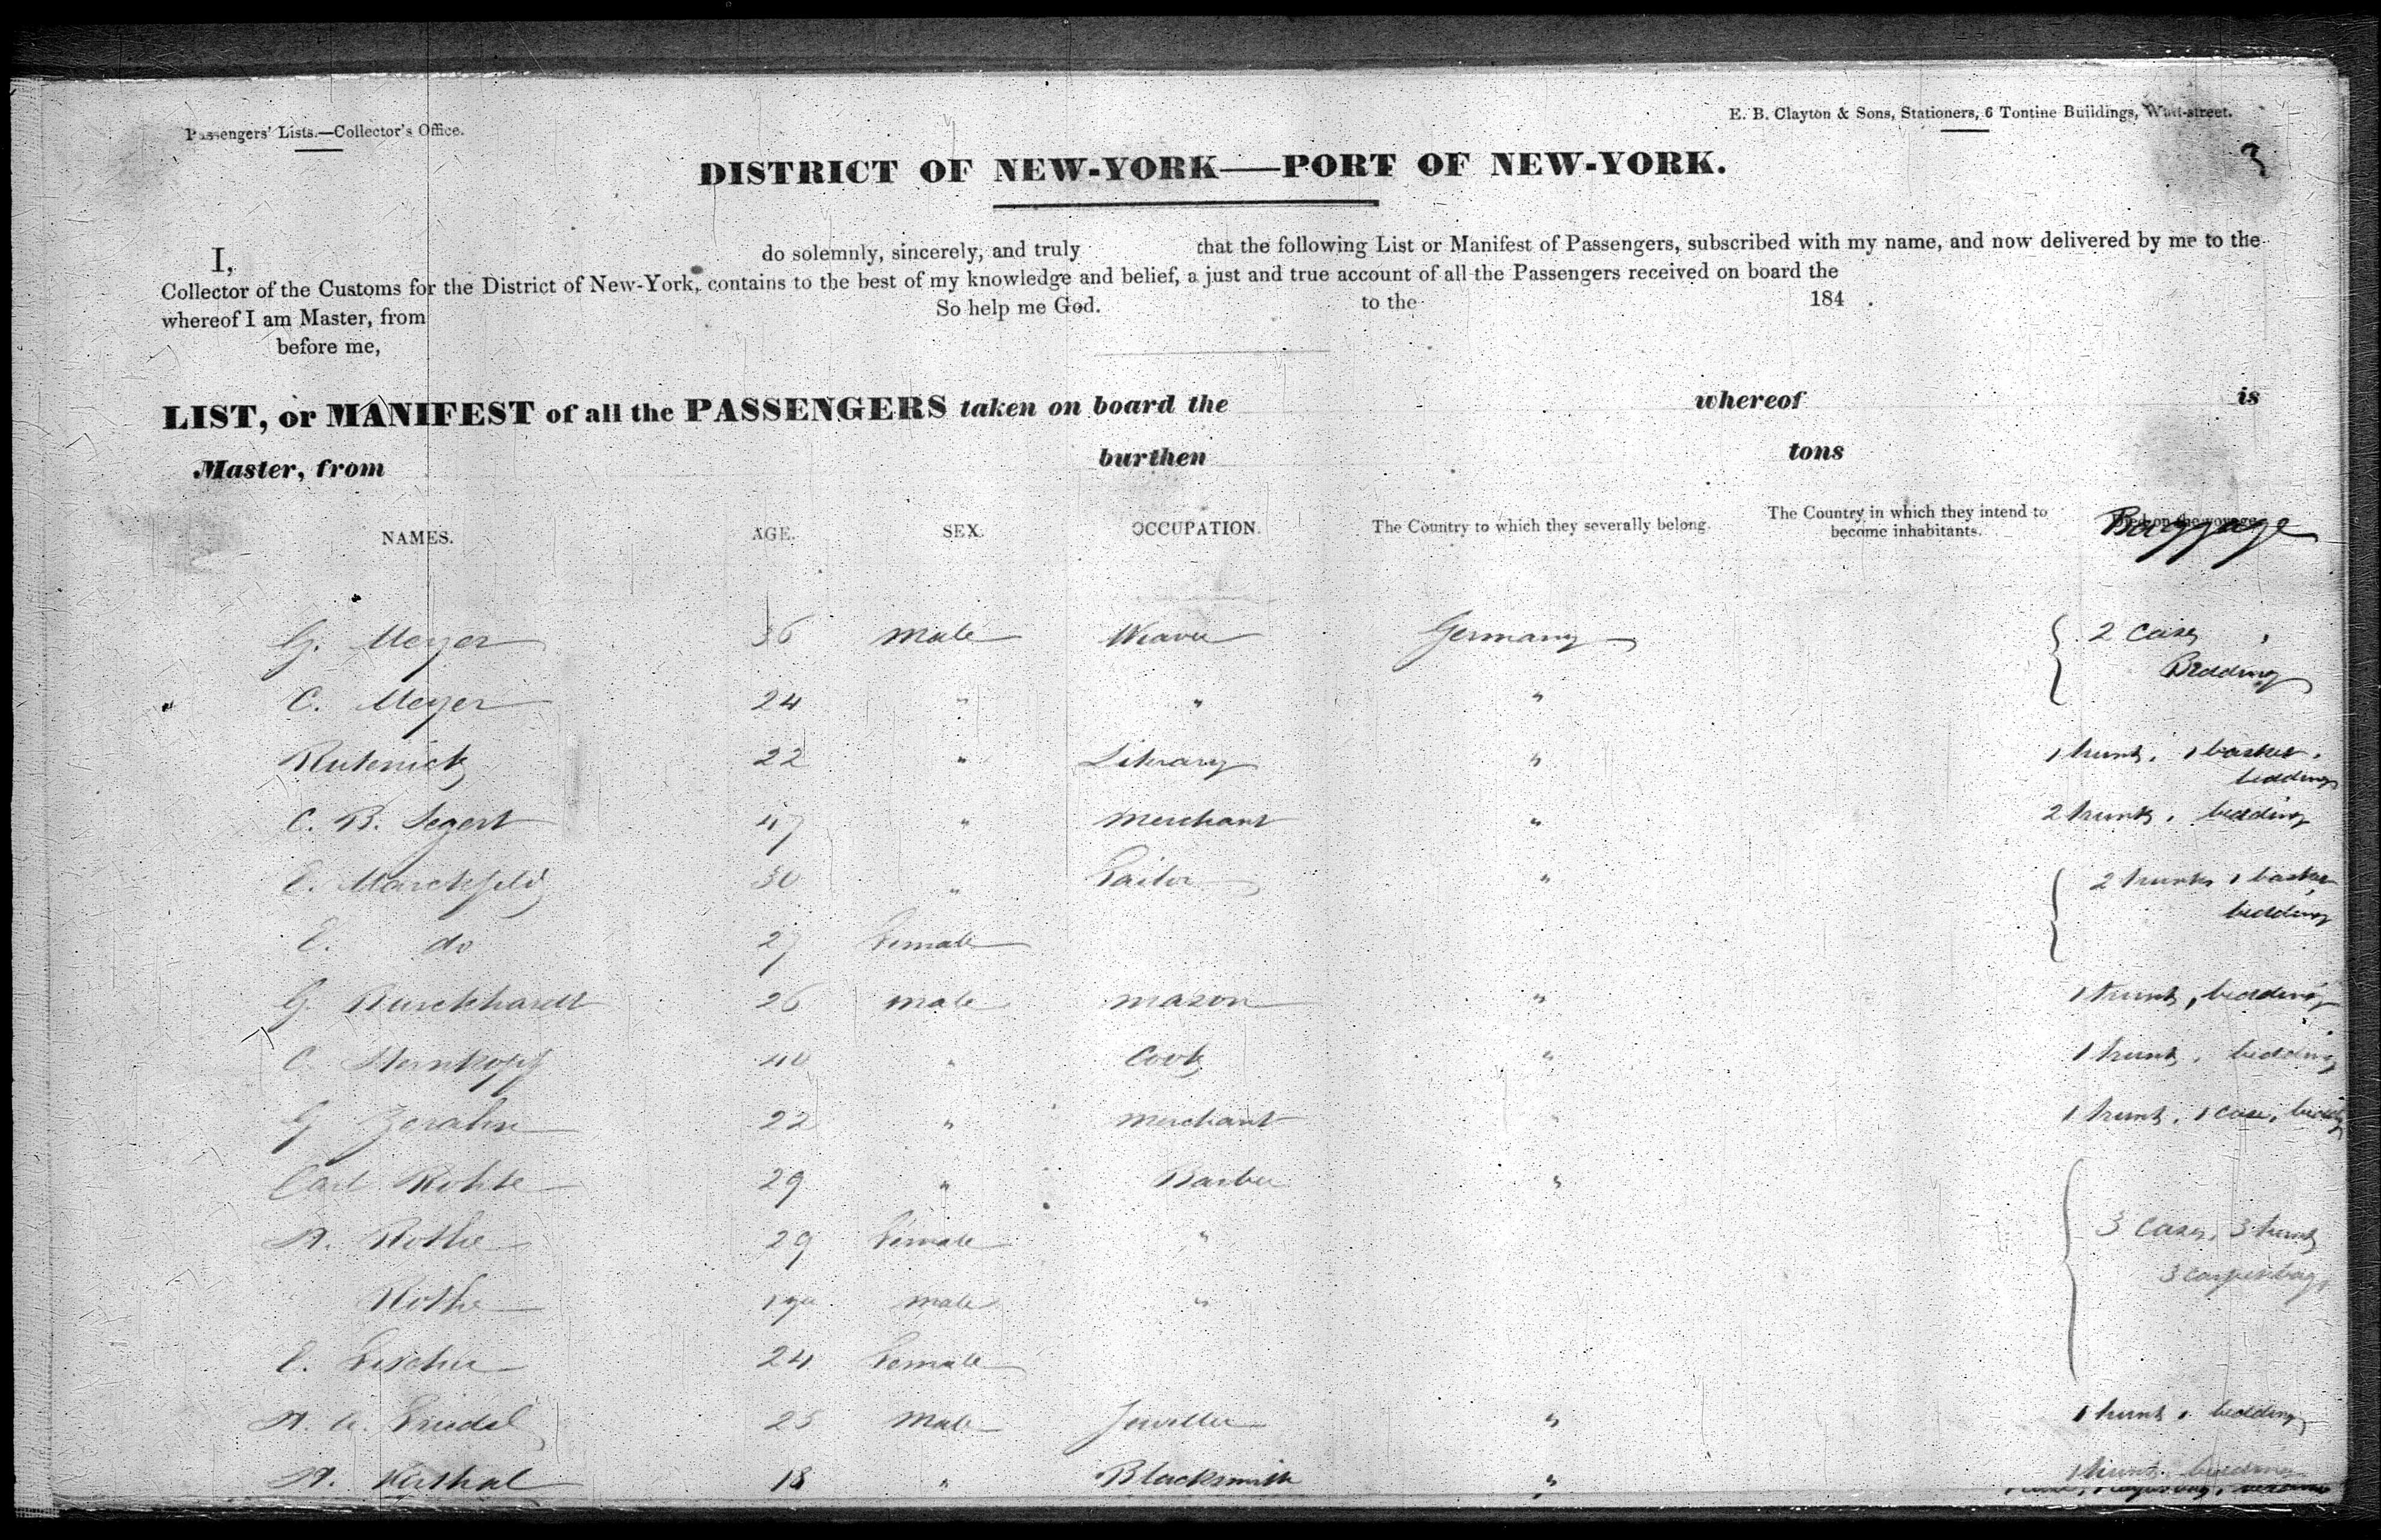 Passengers' Lists.—Collector's Office.
E. B. Clayton & Sons, Stationers, 6 Tontine Buildings, Wall-street.
3
DISTRICT OF NEW-YORK——PORT OF NEW-YORK.
I, do solemnly, sincerely, and truly that the following List or Manifest of Passengers, subscribed with my name, and now delivered by me to the
Collector of the Customs for the District of New-York, contains to the best of my knowledge and belief, a just and true account of all the Passengers received on board the
whereof I am Master, from So help me God. to the 184 .
before me,
LIST, or MANIFEST of all the PASSENGERS taken on board the whereof is
Master, from burthen tons
NAMES. AGE. SEX. OCCUPATION. The Country to which they severally belong. The Country in which they intend to become inhabitants. Died on the voyage. Baggage
G. Meyer 36 male Weaver Germany 2 cases,
Bedding
C. Meyer 24 " " "
Rutenick 22 " Literary " 1 trunk, 1 basket,
bedding
C. B. Segert 47 " Merchant " 2 trunks, bedding
E. Marckfeld 30 " Tailor " 2 trunks 1 basket
bedding
E. do 27 Female
G. Burckhardt 26 male mason " 1 trunk, bedding
C. Sternkopf 40 " Cook " 1 trunk, bedding
G 22 " merchant " 1 trunk, 1 case, bedding
Carl Rothe 29 " Barber "
A. Rothe 29 Female " 3 cases, 3 trunks
3 carpetbags,
Rothe male "
E. Fischer 24 Female
A. Friedel 25 Male Jeweller " 1 trunk, bedding
A. 18 " Blacksmith " 1 trunk, bedding